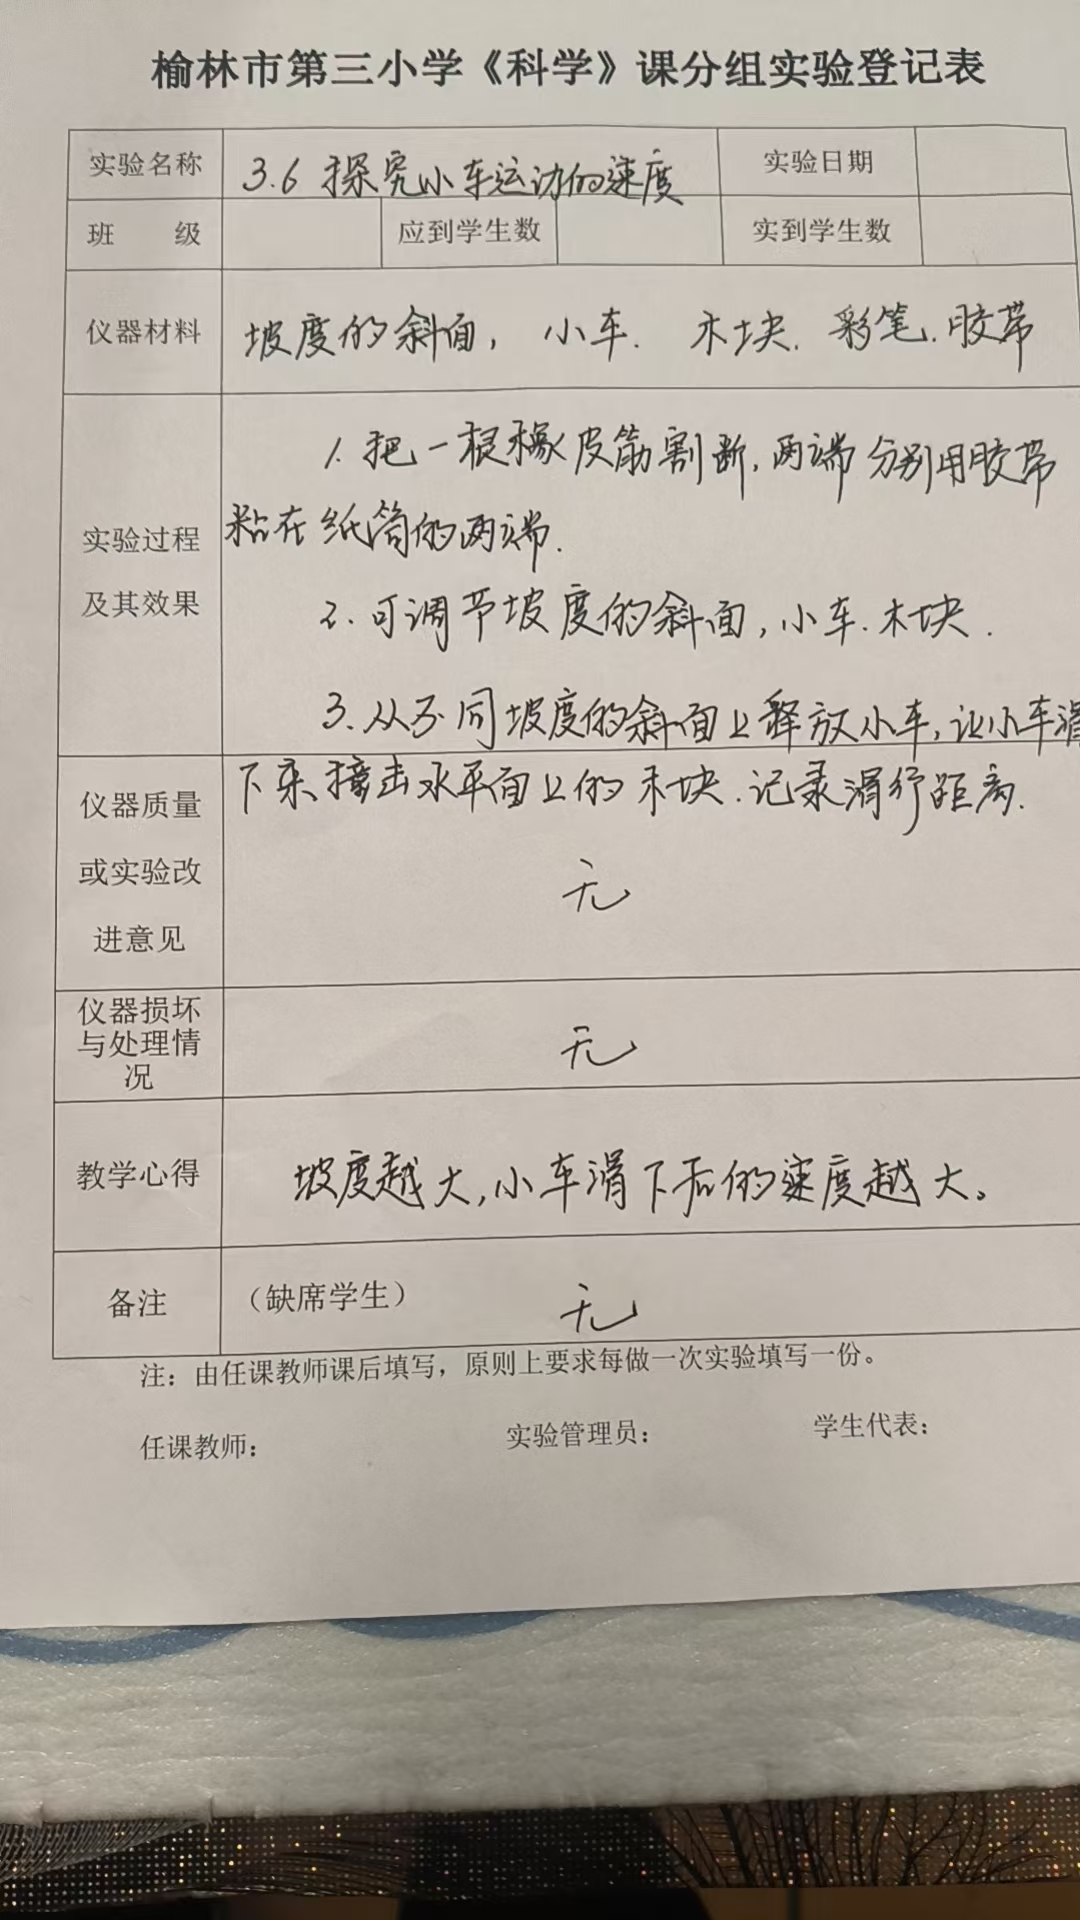 榆林市第三小学《科学》课分组实验登记表
实验名称 3.6 探究小车运动的速度 实验日期
班 级 应到学生数 实到学生数
仪器材料 坡度的斜面, 小车. 木块. 彩笔. 胶带
1. 把一根橡皮筋割断, 两端分别用胶带
粘在纸筒的两端.
实验过程
及其效果
2. 可调节坡度的斜面, 小车. 木块.
3. 从不同坡度的斜面上释放小车, 让小车滑
下来撞击水平面上的木块. 记录滑行距离.
仪器质量
或实验改
进意见
无
仪器损坏
与处理情
况
无
教学心得 坡度越大, 小车滑下后的速度越大。
备注 （缺席学生） 无
注：由任课教师课后填写，原则上要求每做一次实验填写一份。
任课教师： 实验管理员： 学生代表：